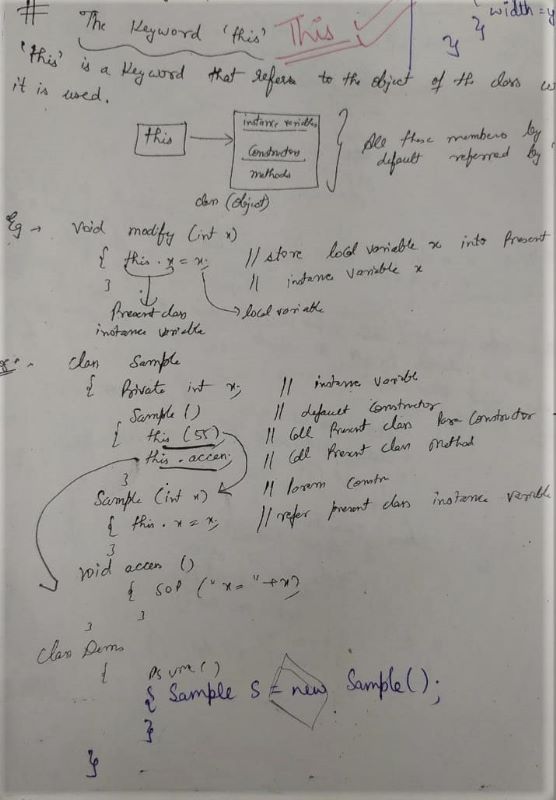 width = y
}
}
# The Keyword 'this' This
'this' is a Keyword that refers to the object of the class
it is used.
this
instance variables
Constructors
methods
class (object)
All these members by
default referred by
Eg → Void modify (int x)
{ this.x = x; // store local variable x into Present
} // instance variable x
Present class
instance variable
local variable
class Sample
{ Private int x; // instance variable
Sample () // default Constructor
{ this (55); // Call Present class Para Constructor
this.access; // Call Present class Method
}
Sample (int x) // Param Constr
{ this.x = x; // refer present class instance variable
}
void access ()
{ SOP ("x = "+x)
}
}
class Demo
{ PSVM ()
{ Sample S = new Sample();
}
}